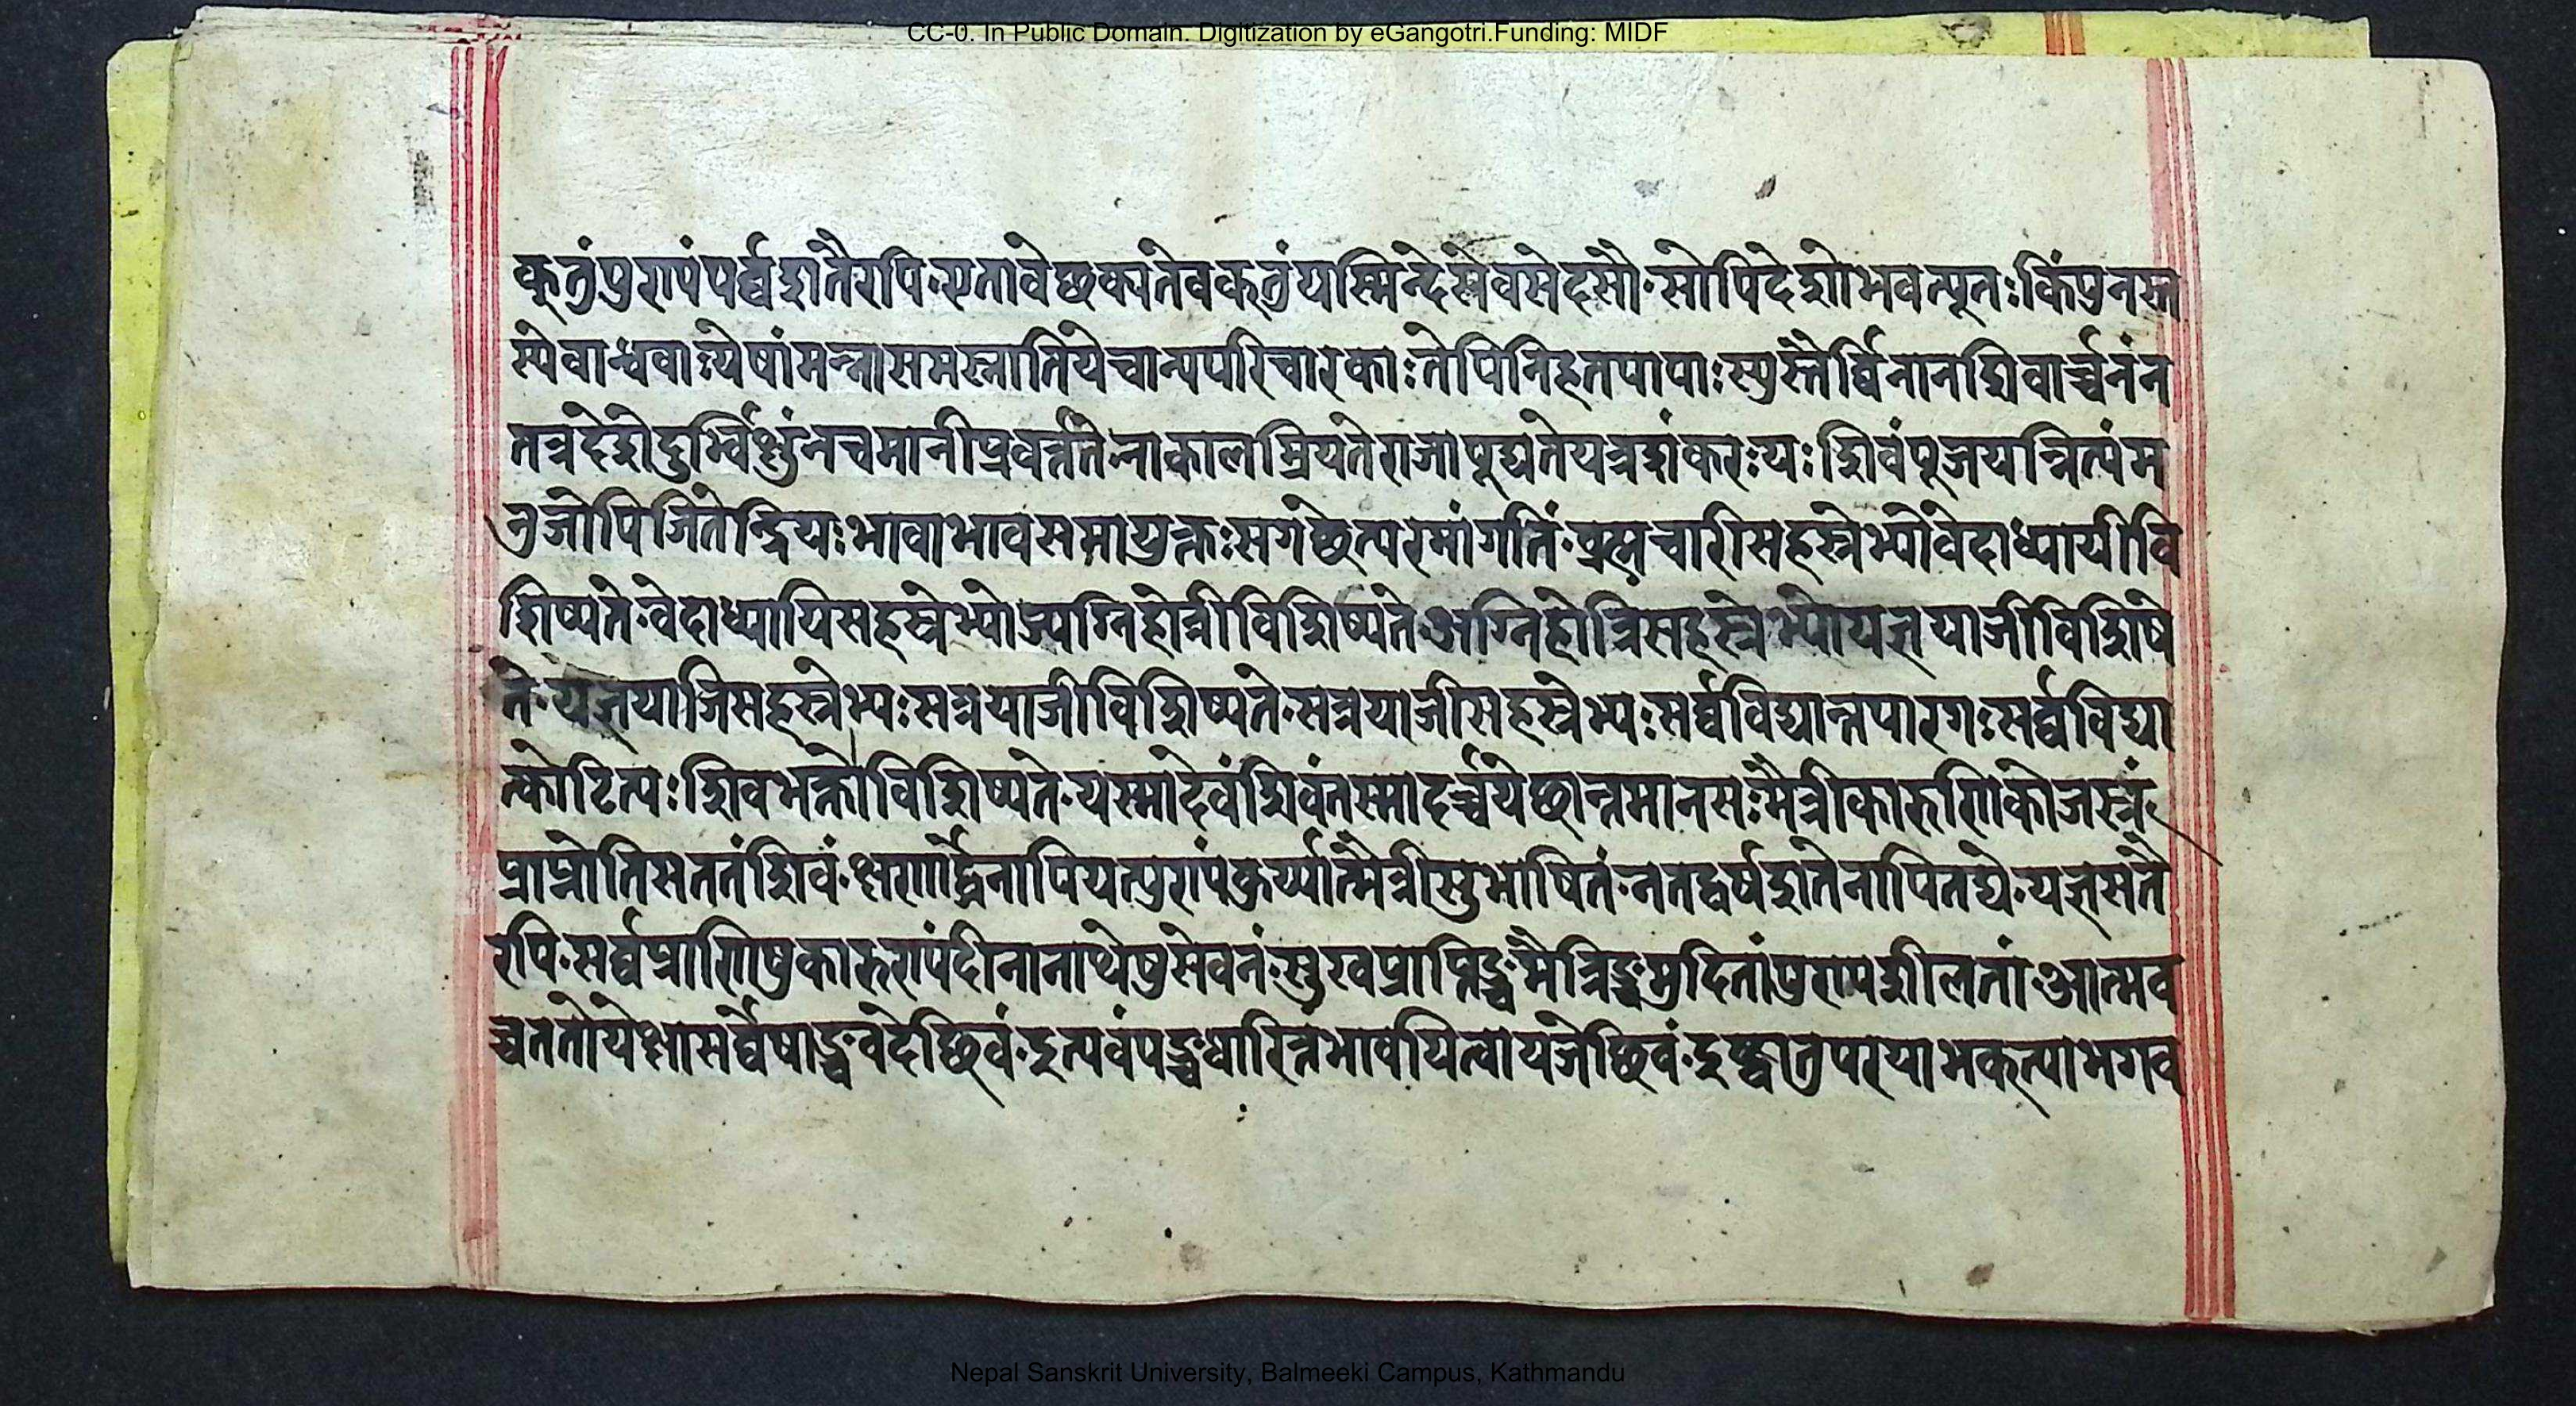 CC-0. In Public Domain. Digitization by eGangotri.Funding: MIDF
क्तुंपुण्यंपर्व्वशतैरपि॰एतावेछक्यतेवक्तुंयस्मिन्देसेवसेदसौ॰सोपिदेशोभवत्पूतःकिंपुनस्त
स्येवान्धवाःयेषांमन्त्रासमस्नातियेचान्यपरिचारकाःतेपिनिहतपापाःस्युस्तैर्व्विनानशिवार्च्चनंन
तत्रदेशेदुर्भ्भिक्षुंनचमानीप्रवर्त्ततेनाकालम्रियतेराजापूद्यतेयत्रशंकरःयःशिवंपूजयन्नित्यंम
नुजोपिजितेन्द्रियःभावाभावसमायुक्तःसगछेत्परमांगतिं॰ब्रह्मचारीसहस्त्रेभ्योवेदाध्यायीवि
शिष्यते॰वेदाध्यायिसहस्त्रेभ्योज्यग्निहोत्रीविशिष्यते॰अग्निहोत्रिसहस्त्रेभ्योयज्ञयाजीविशिषे
ते॰यज्ञयाजिसहस्त्रेभ्यःसत्रयाजीविशिष्यते॰सत्रयाजीसहस्त्रेभ्यःसर्व्वविद्यान्तपारगःसर्व्वविद्या
न्तकोटित्यःशिवभक्तोविशिष्यते॰यस्मादेवंशिवंतस्मादर्च्चयेछान्तमानसःमैत्रीकारुणिकोजस्त्रं
प्राप्नोतिसततंशिवं॰क्षणार्द्धेनापियत्पुण्यंकुर्य्यान्मैत्रीसुभाषितं॰नतद्वर्षशतेनापितद्ये॰यज्ञसतै
रपि॰सर्व्वप्राणिषुकारुण्यंदीनानाथेषुसेवनं॰सुखप्राप्तिञ्चमैत्रिञ्चमुदितांपुण्यशीलतां॰आत्मव
च्चततोयेक्षासर्व्वेषाञ्चवदेछिवं॰इत्यवंपञ्चधारित्तंभावयित्वायजेछिवं॰इष्ट्वातुपरयाभक्त्याभगव
Nepal Sanskrit University, Balmeeki Campus, Kathmandu